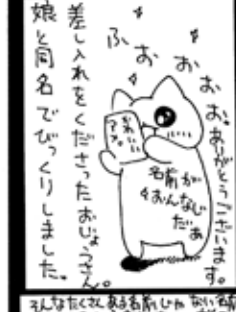 ふおおおお
ありがとうございます。
名前が
おんなじ
だぁ
差し入れをくださったおじょうさん。
娘と同名でびっくりしました。
そんなたくさんある名前じゃない